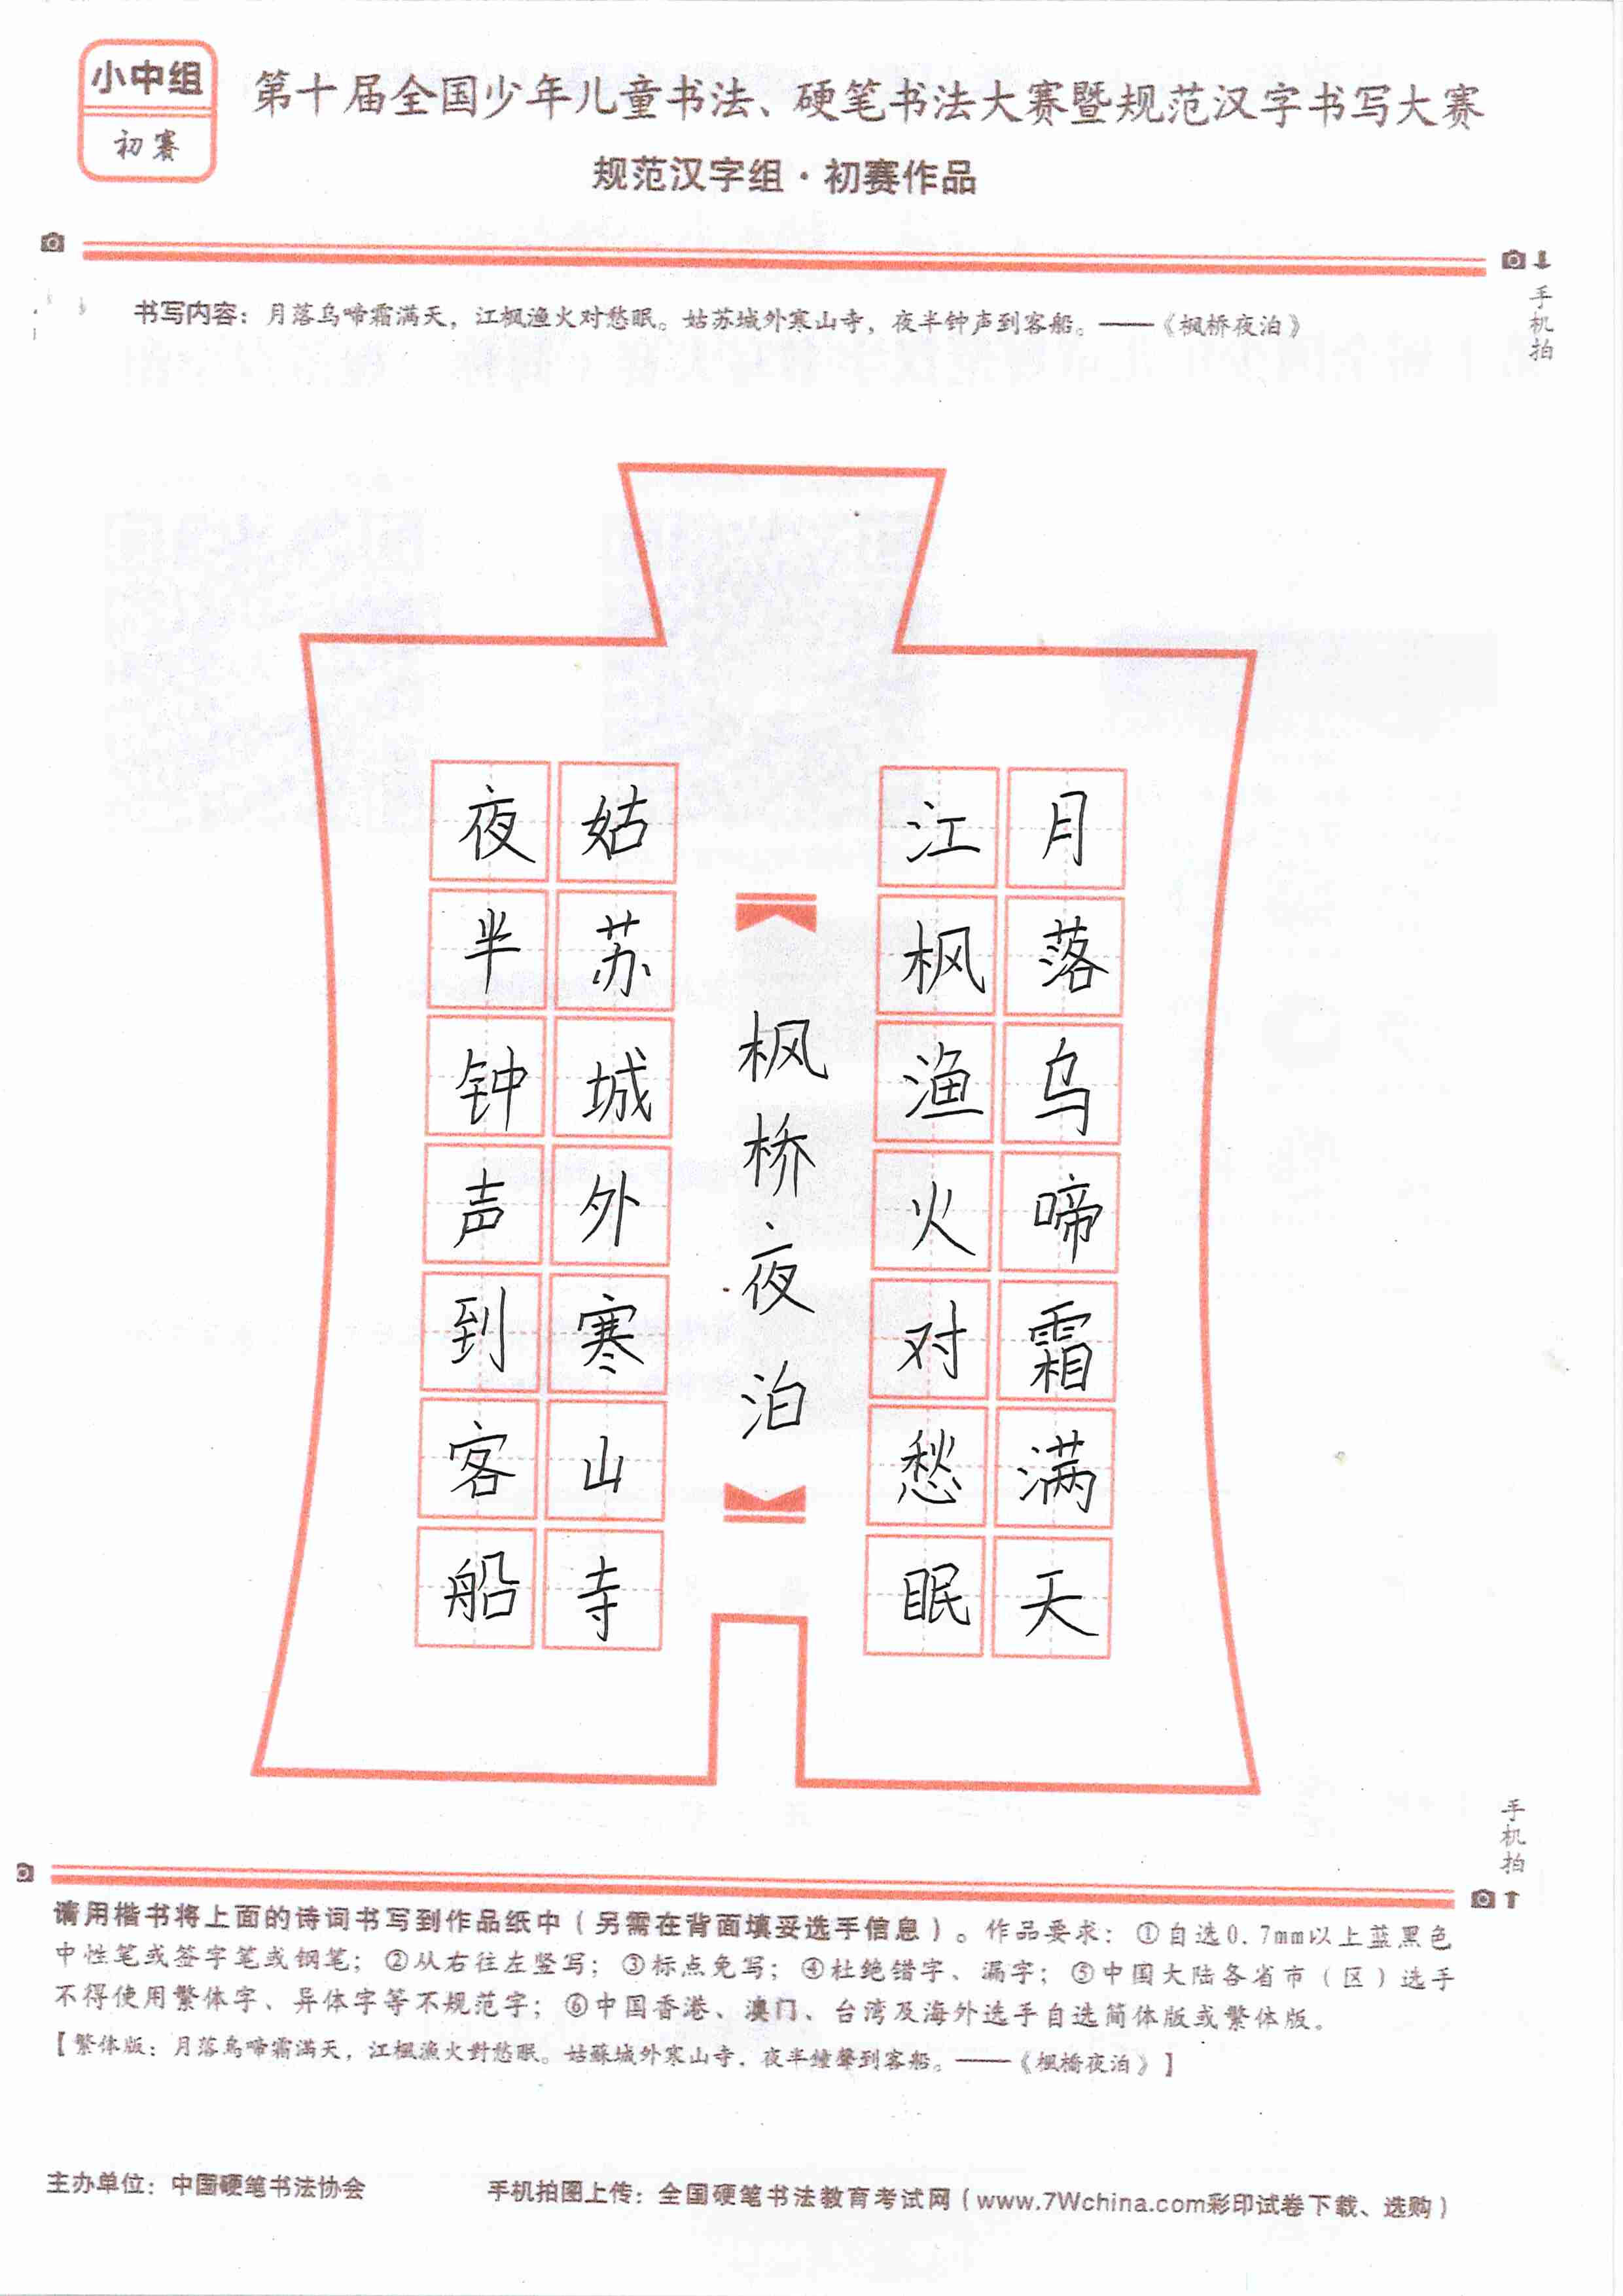 小中组
初赛
第十届全国少年儿童书法、硬笔书法大赛暨规范汉字书写大赛
规范汉字组·初赛作品
手机拍
书写内容：月落乌啼霜满天，江枫渔火对愁眠。姑苏城外寒山寺，夜半钟声到客船。——《枫桥夜泊》
月落乌啼霜满天
江枫渔火对愁眠
枫桥夜泊
姑苏城外寒山寺
夜半钟声到客船
手机拍
请用楷书将上面的诗词书写到作品纸中（另需在背面填妥选手信息）。作品要求：①自选0.7mm以上蓝黑色
中性笔或签字笔或钢笔；②从右往左竖写；③标点免写；④杜绝错字、漏字；⑤中国大陆各省市（区）选手
不得使用繁体字、异体字等不规范字；⑥中国香港、澳门、台湾及海外选手自选简体版或繁体版。
【繁体版：月落烏啼霜滿天，江楓漁火對愁眠。姑蘇城外寒山寺，夜半鐘聲到客船。——《楓橋夜泊》】
主办单位：中国硬笔书法协会
手机拍图上传：全国硬笔书法教育考试网（www.7Wchina.com彩印试卷下载、选购）